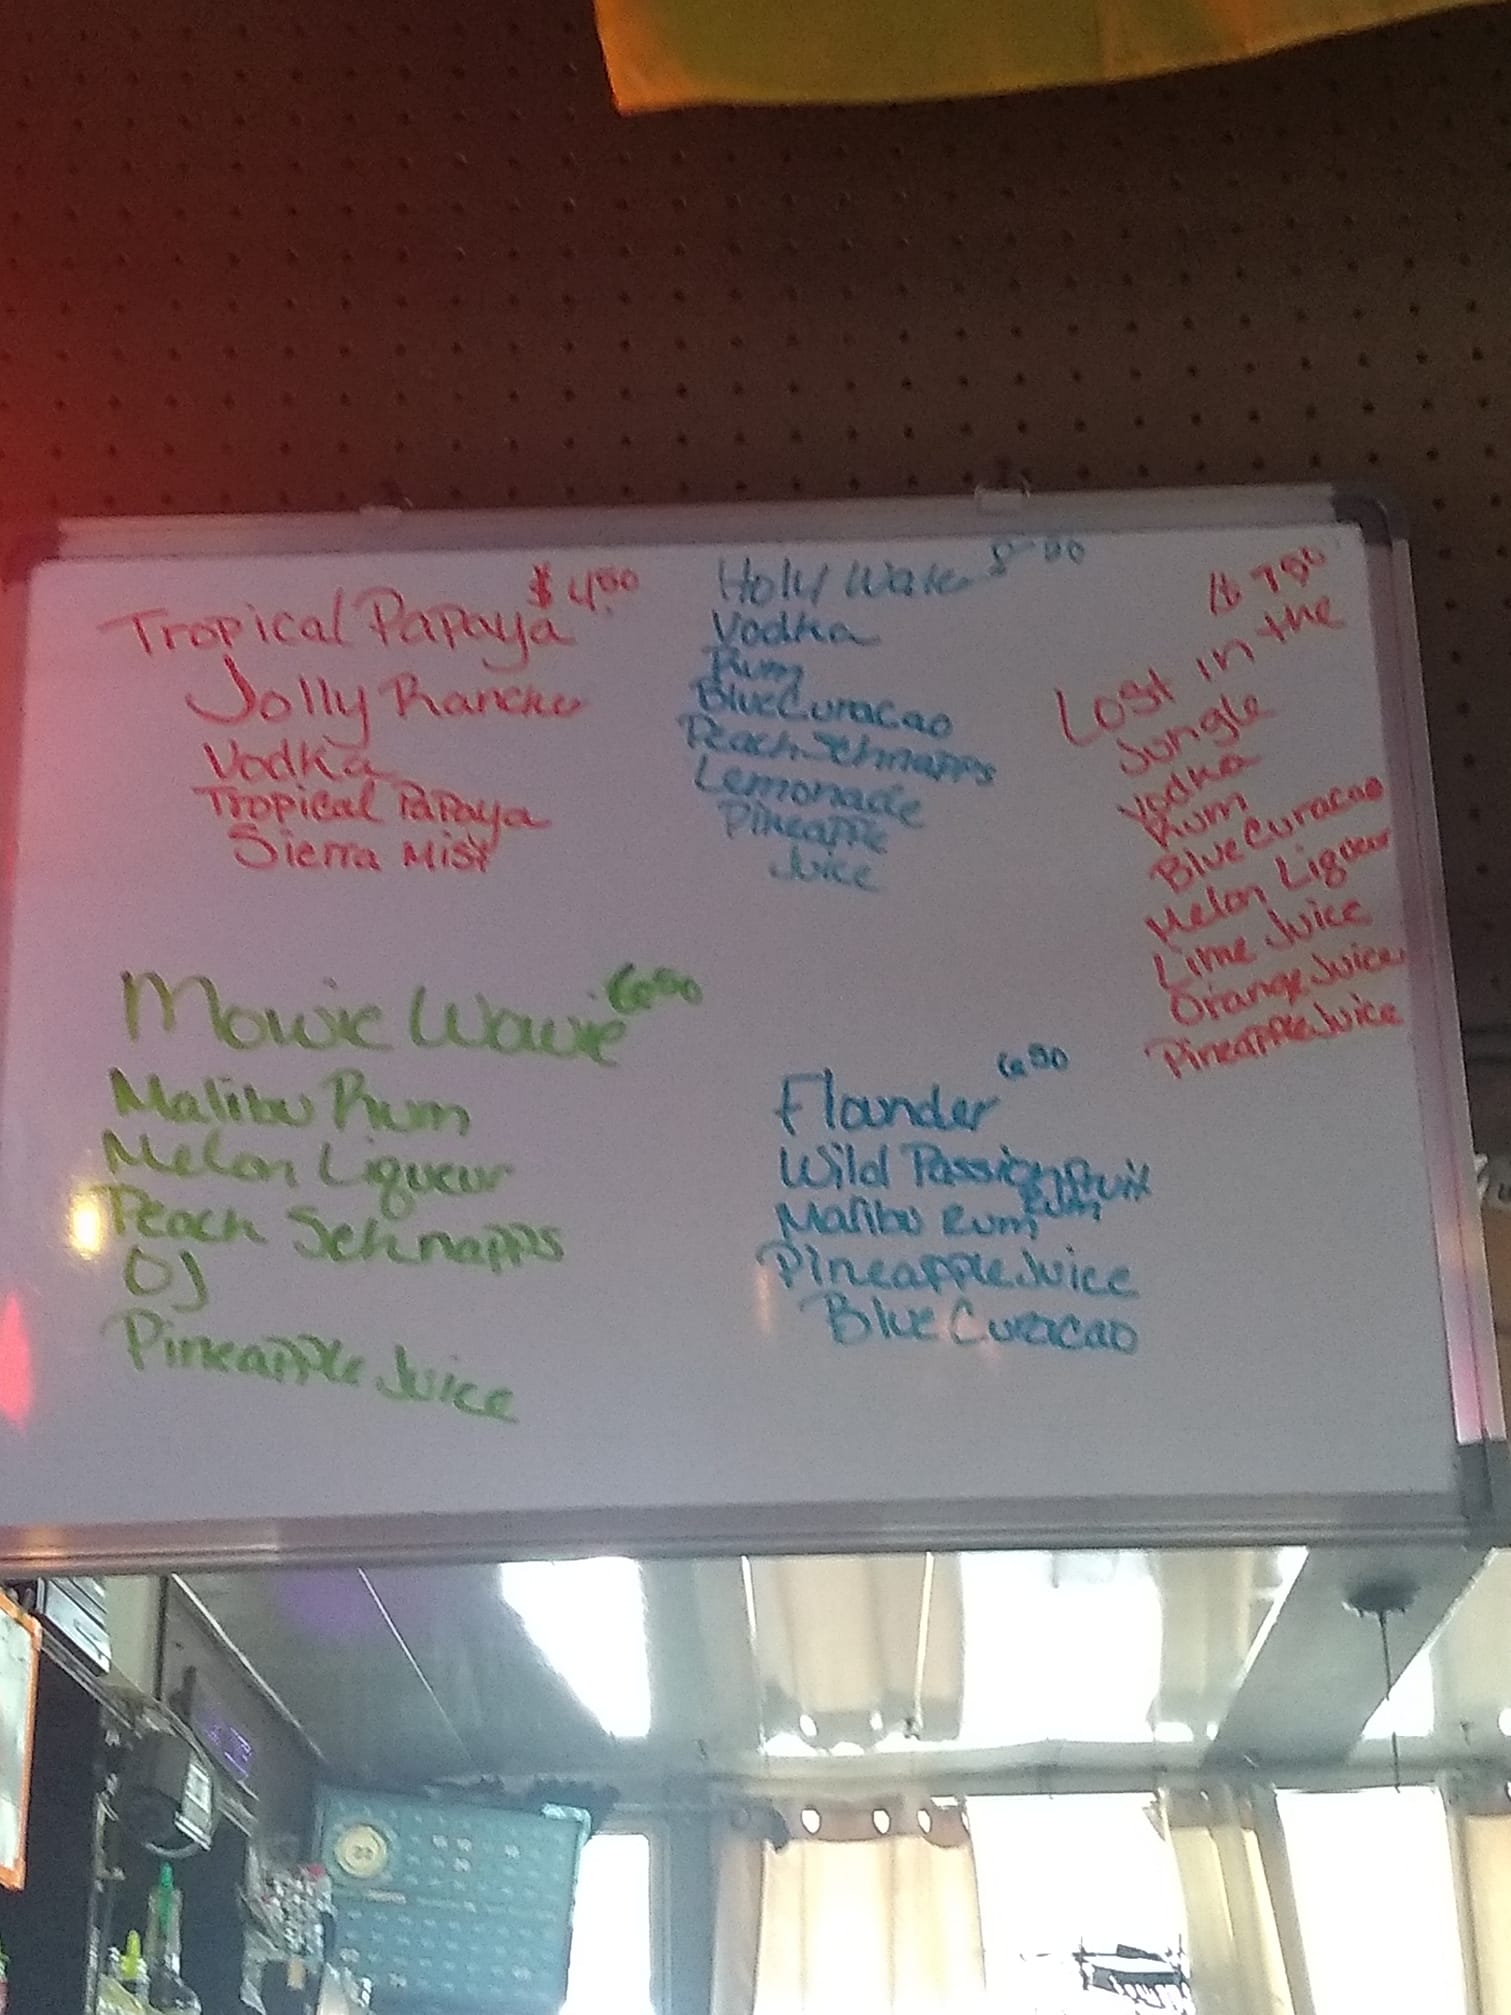 $4.50
Tropical Papaya
Jolly Rancher
Vodka
Tropical Papaya
Sierra Mist
Holy Water
Vodka
Rum
Blue Curacao
Peach Schnapps
Lemonade
Pineapple
Juice
$ 7.50
Lost in the
Jungle
Vodka
Rum
Blue Curacao
Melon Liqueur
Lime Juice
Orange Juice
Pineapple Juice
Mowie Wowie 6.50
Malibu Rum
Melon Liqueur
Peach Schnapps
OJ
Pineapple Juice
Flounder 6.50
Wild Passionfruit
Rum
Malibu Rum
Pineapple Juice
Blue Curacao